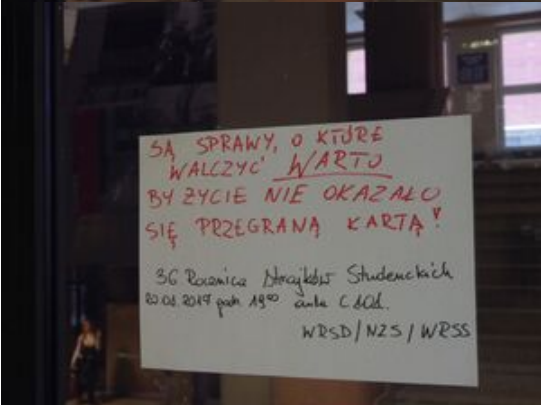 SĄ SPRAWY, O KTÓRE
WALCZYĆ WARTO
BY ŻYCIE NIE OKAZAŁO
SIĘ PRZEGRANĄ KARTĄ!
36 Rocznica Strajków Studenckich
2017 godz. 19⁰⁰ aula C
WRSD/NZS/WRSS